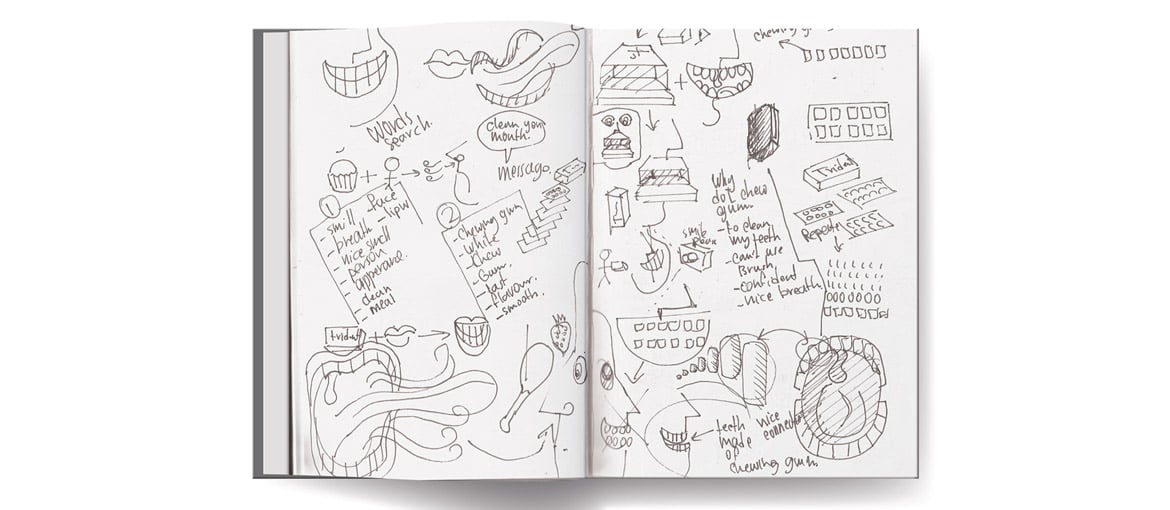 words
search.
clean your
mouth.
message.
1
- smill - face
- breath - lips
- nice smell
- person
- apperance.
- clean
- meal
2
- chewing gum
- white
- chew
- Gum.
- last
- flavour.
- smooth.
trident
chewing gum
Why
do I chew
gum.
- to clean
my teeth
- can't use
Brush
- confident
- nice breath.
smile
Box
Trident
Repeate
teeth
made
of
chewing gum.
nice
connection